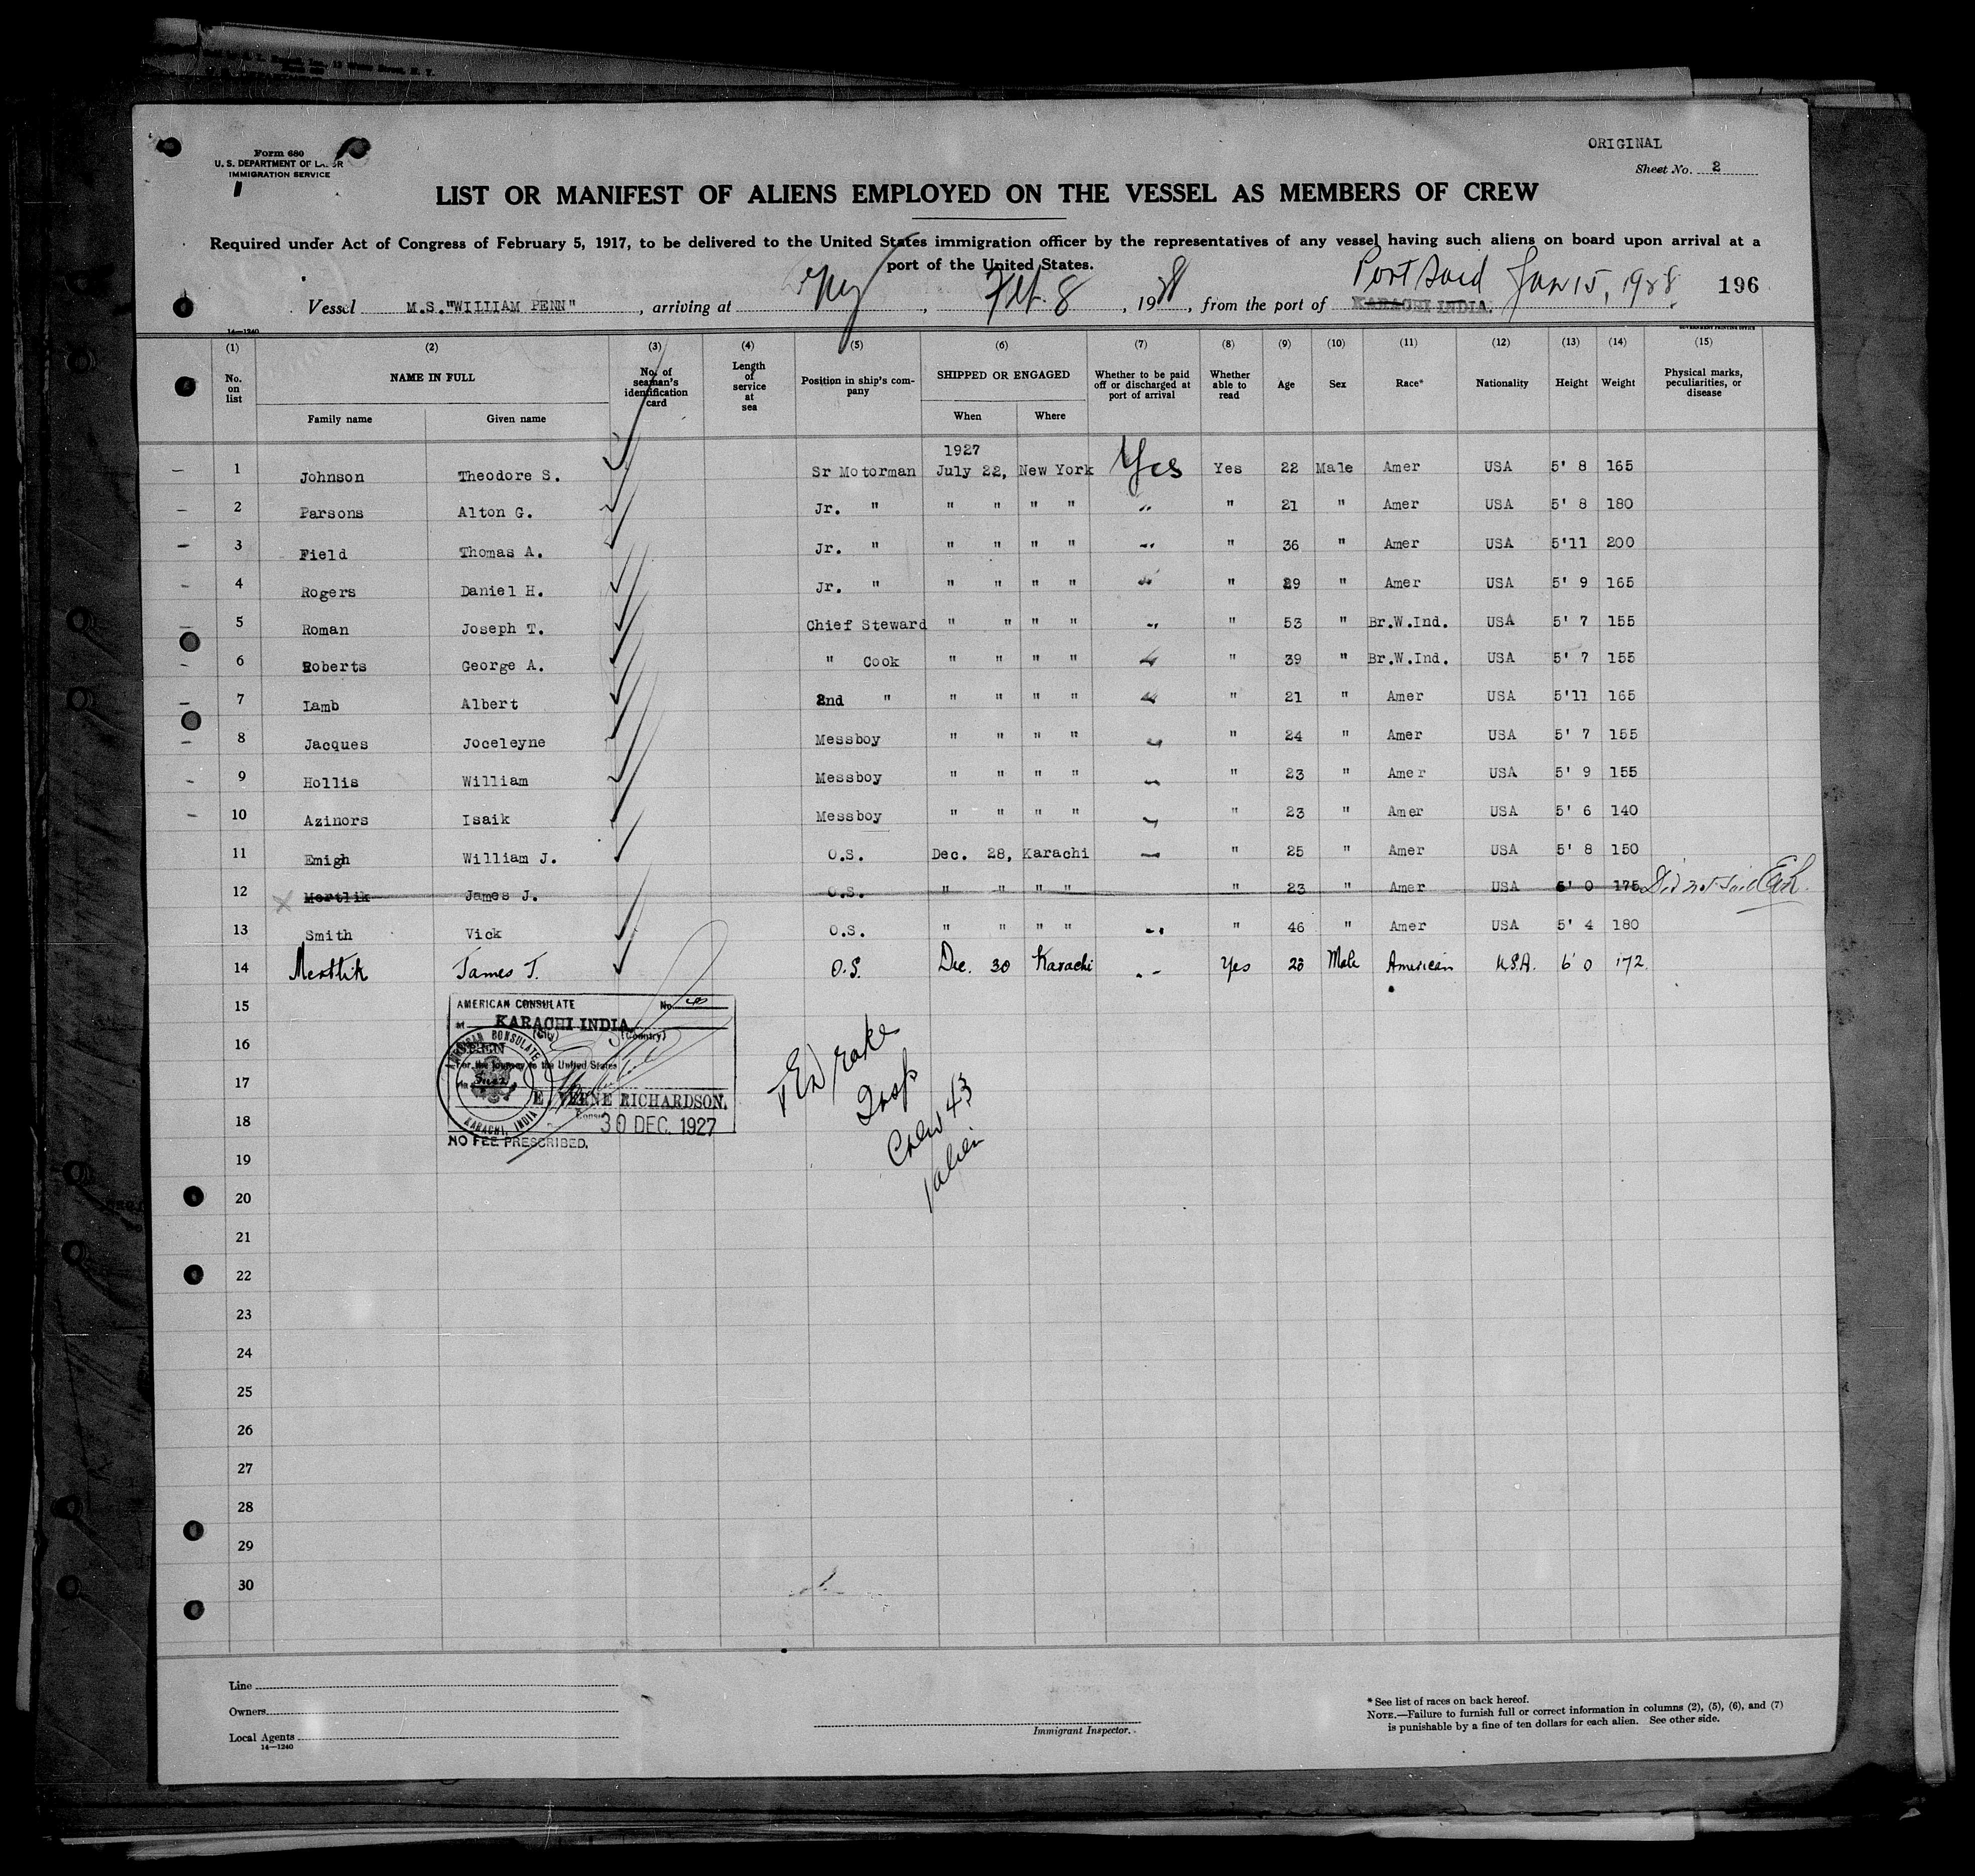 Form 680
U. S. DEPARTMENT OF LABOR
IMMIGRATION SERVICE
ORIGINAL
Sheet No. 2
LIST OR MANIFEST OF ALIENS EMPLOYED ON THE VESSEL AS MEMBERS OF CREW
Required under Act of Congress of February 5, 1917, to be delivered to the United States immigration officer by the representatives of any vessel having such aliens on board upon arrival at a
port of the United States.
Vessel M.S."WILLIAM PENN", arriving at NY, Feb. 8, 1928, from the port of KARACHI INDIA. Port Said Jan 15, 1928 196
14—1240 GOVERNMENT PRINTING OFFICE
(1) (2) (3) (4) (5) (6) (7) (8) (9) (10) (11) (12) (13) (14) (15)
No. on list NAME IN FULL No. of seaman's identification card Length of service at sea Position in ship's company SHIPPED OR ENGAGED Whether to be paid off or discharged at port of arrival Whether able to read Age Sex Race* Nationality Height Weight Physical marks, peculiarities, or disease
Family name Given name When Where
1927
1 Johnson Theodore S. Sr Motorman July 22, New York Yes Yes 22 Male Amer USA 5' 8 165
2 Parsons Alton G. Jr. " " " " " " " 21 " Amer USA 5' 8 180
3 Field Thomas A. Jr. " " " " " " " 36 " Amer USA 5'11 200
4 Rogers Daniel H. Jr. " " " " " " " 29 " Amer USA 5' 9 165
5 Roman Joseph T. Chief Steward " " " " " " 53 " Br.W.Ind. USA 5' 7 155
6 Roberts George A. " Cook " " " " " " 39 " Br.W.Ind. USA 5' 7 155
7 Lamb Albert 2nd " " " " " " " 21 " Amer USA 5'11 165
8 Jacques Joceleyne Messboy " " " " " " 24 " Amer USA 5' 7 155
9 Hollis William Messboy " " " " " " 23 " Amer USA 5' 9 155
10 Azinors Isaik Messboy " " " " " " 23 " Amer USA 5' 6 140
11 Emigh William J. O.S. Dec. 28, Karachi " " 25 " Amer USA 5' 8 150
12 Mertlik James J. O.S. " " " " " 23 " Amer USA 6' 0 175 Did not sail
13 Smith Vick O.S. " " " " " " 46 " Amer USA 5' 4 180
14 Mertlik James J. O.S. Dec. 30 Karachi " Yes 23 Male American U.S.A. 6' 0 172
15
16
17
18
19
20
21
22
23
24
25
26
27
28
29
30
AMERICAN CONSULATE No.
at KARACHI INDIA.
(City) (Country)
SEEN
For the journey to the United States
Via Suez
E. VERNE RICHARDSON.
Consul
30 DEC. 1927
NO FEE PRESCRIBED.
AMERICAN CONSULATE
KARACHI, INDIA
Drake
Insp
Crew 43
1 alien
Line
Owners
Local Agents
14—1240
Immigrant Inspector.
* See list of races on back hereof.
NOTE.—Failure to furnish full or correct information in columns (2), (5), (6), and (7)
is punishable by a fine of ten dollars for each alien. See other side.